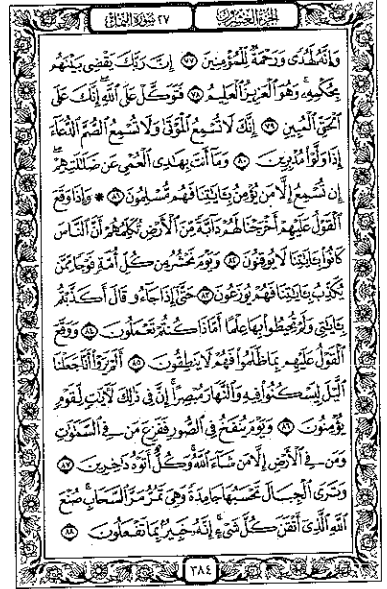 الجزء العشرون ٢٧ سورة النمل
وَإِنَّهُۥ لَهُدًى وَرَحْمَةٌ لِّلْمُؤْمِنِينَ ٧٧ إِنَّ رَبَّكَ يَقْضِى بَيْنَهُم
بِحُكْمِهِۦ وَهُوَ ٱلْعَزِيزُ ٱلْعَلِيمُ ٧٨ فَتَوَكَّلْ عَلَى ٱللَّهِ إِنَّكَ عَلَى
ٱلْحَقِّ ٱلْمُبِينِ ٧٩ إِنَّكَ لَا تُسْمِعُ ٱلْمَوْتَىٰ وَلَا تُسْمِعُ ٱلصُّمَّ ٱلدُّعَآءَ
إِذَا وَلَّوْا۟ مُدْبِرِينَ ٨٠ وَمَآ أَنتَ بِهَـٰدِى ٱلْعُمْىِ عَن ضَلَـٰلَتِهِمْ
إِن تُسْمِعُ إِلَّا مَن يُؤْمِنُ بِـَٔايَـٰتِنَا فَهُم مُّسْلِمُونَ ٨١ * وَإِذَا وَقَعَ
ٱلْقَوْلُ عَلَيْهِمْ أَخْرَجْنَا لَهُمْ دَآبَّةً مِّنَ ٱلْأَرْضِ تُكَلِّمُهُمْ أَنَّ ٱلنَّاسَ
كَانُوا۟ بِـَٔايَـٰتِنَا لَا يُوقِنُونَ ٨٢ وَيَوْمَ نَحْشُرُ مِن كُلِّ أُمَّةٍ فَوْجًا مِّمَّن
يُكَذِّبُ بِـَٔايَـٰتِنَا فَهُمْ يُوزَعُونَ ٨٣ حَتَّىٰٓ إِذَا جَآءُو قَالَ أَكَذَّبْتُم
بِـَٔايَـٰتِى وَلَمْ تُحِيطُوا۟ بِهَا عِلْمًا أَمَّاذَا كُنتُمْ تَعْمَلُونَ ٨٤ وَوَقَعَ
ٱلْقَوْلُ عَلَيْهِم بِمَا ظَلَمُوا۟ فَهُمْ لَا يَنطِقُونَ ٨٥ أَلَمْ يَرَوْا۟ أَنَّا جَعَلْنَا
ٱلَّيْلَ لِيَسْكُنُوا۟ فِيهِ وَٱلنَّهَارَ مُبْصِرًا إِنَّ فِى ذَٰلِكَ لَـَٔايَـٰتٍ لِّقَوْمٍ
يُؤْمِنُونَ ٨٦ وَيَوْمَ يُنفَخُ فِى ٱلصُّورِ فَفَزِعَ مَن فِى ٱلسَّمَـٰوَٰتِ
وَمَن فِى ٱلْأَرْضِ إِلَّا مَن شَآءَ ٱللَّهُ وَكُلٌّ أَتَوْهُ دَٰخِرِينَ ٨٧
وَتَرَى ٱلْجِبَالَ تَحْسَبُهَا جَامِدَةً وَهِىَ تَمُرُّ مَرَّ ٱلسَّحَابِ صُنْعَ
ٱللَّهِ ٱلَّذِىٓ أَتْقَنَ كُلَّ شَىْءٍ إِنَّهُۥ خَبِيرٌۢ بِمَا تَفْعَلُونَ ٨٨
٣٨٤